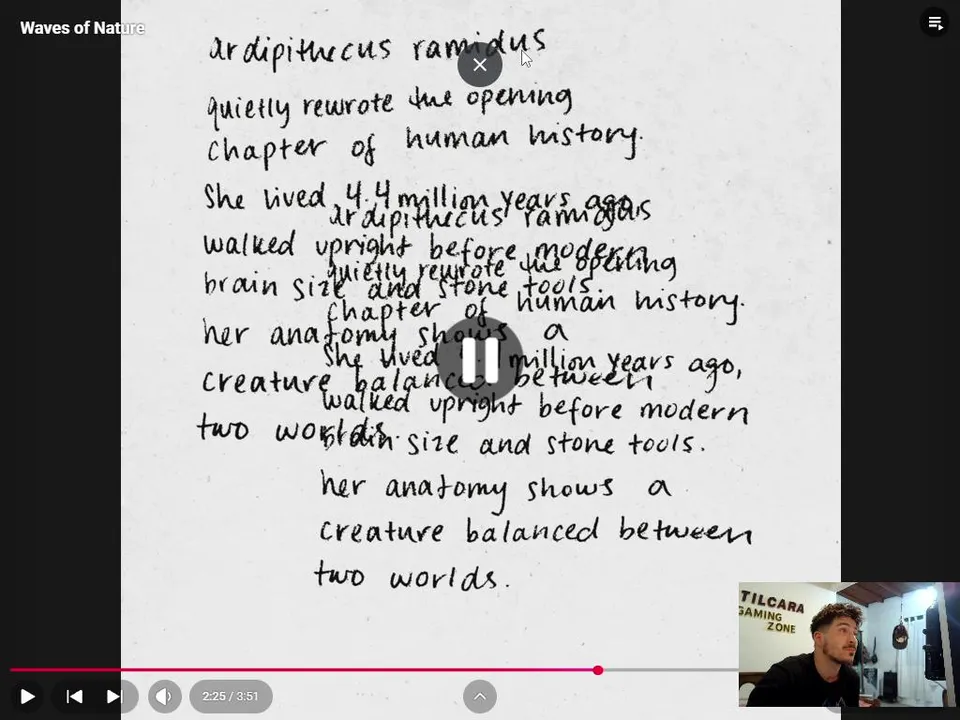 Waves of Nature
ardipithecus ramidus
quietly rewrote the opening
chapter of human history.
She lived 4.4 million years ago,
walked upright before modern
brain size and stone tools.
her anatomy shows a
creature balanced between
two worlds.
ardipithecus ramidus
quietly rewrote the opening
chapter of human history.
She lived million years ago,
walked upright before modern
brain size and stone tools.
her anatomy shows a
creature balanced between
two worlds.
TILCARA
GAMING
ZONE
2:25 / 3:51